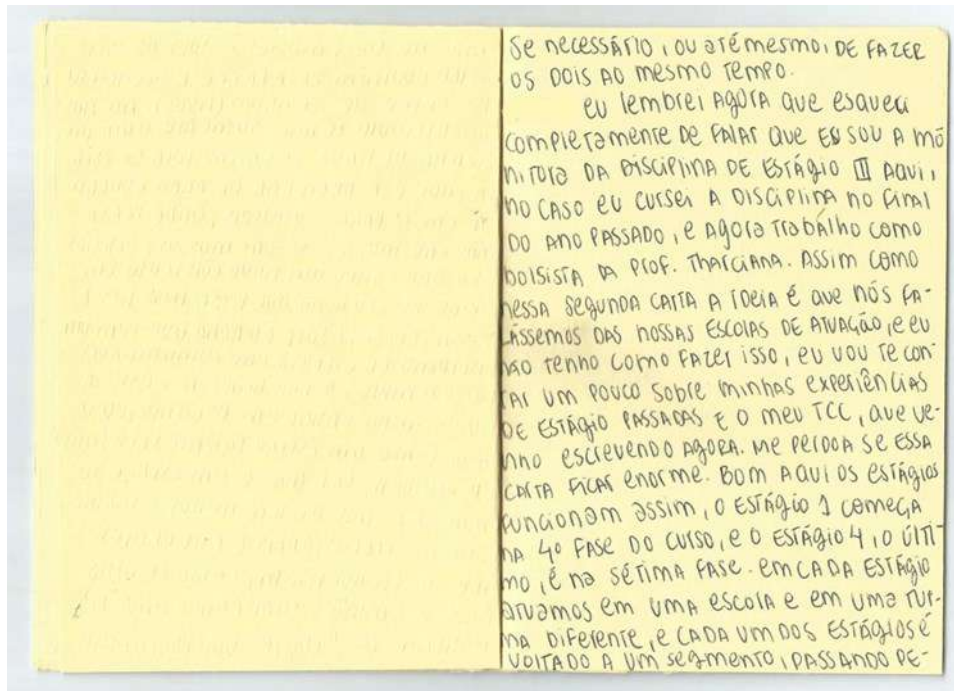 se necessário, ou até mesmo, de fazer
os dois ao mesmo tempo.
eu lembrei agora que esqueci
completamente de falar que eu sou a mo
nitora da disciplina de estágio III aqui,
no caso eu cursei a disciplina no final
do ano passado, e agora trabalho como
bolsista da prof. Tharciana. Assim como
nessa segunda carta a ideia é que nós fa-
lássemos das nossas escolas de atuação, e eu
não tenho como fazer isso, eu vou te con-
tar um pouco sobre minhas experiências
de estágio passadas e o meu TCC, que ve-
nho escrevendo agora. me perdoa se essa
carta ficar enorme. Bom aqui os estágios
funcionam assim, o estágio 1 começa
na 4º fase do curso, e o estágio 4, o últi-
mo, é na sétima fase. em cada estágio
atuamos em uma escola e em uma tur-
ma diferente, e cada um dos estágios é
voltado a um segmento, passando pe-